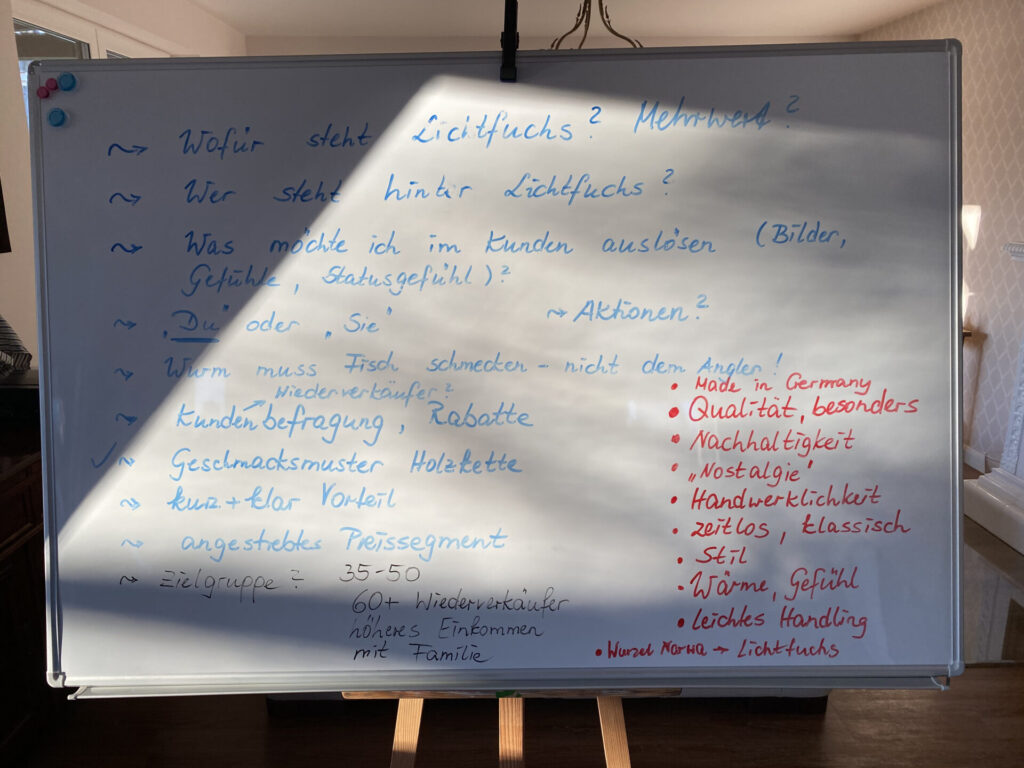 ~> Wofür steht Lichtfuchs? Mehrwert?
~> Wer steht hinter Lichtfuchs?
~> Was möchte ich im Kunden auslösen (Bilder,
Gefühle, Statusgefühl)?
~> "Du" oder "Sie"
~> Aktionen?
~> Wurm muss Fisch schmecken - nicht dem Angler!
Wiederverkäufer?
~> Kundenbefragung, Rabatte
✓ ~> Geschmacksmuster Holzkette
~> kurz + klar Vorteil
~> angestrebtes Preissegment
~> Zielgruppe? 35-50
60+ Wiederverkäufer
höheres Einkommen
mit Familie
• Made in Germany
• Qualität, besonders
• Nachhaltigkeit
• „Nostalgie"
• Handwerklichkeit
• zeitlos, klassisch
• Stil
• Wärme, Gefühl
• leichtes Handling
• Wurzel Narva → Lichtfuchs